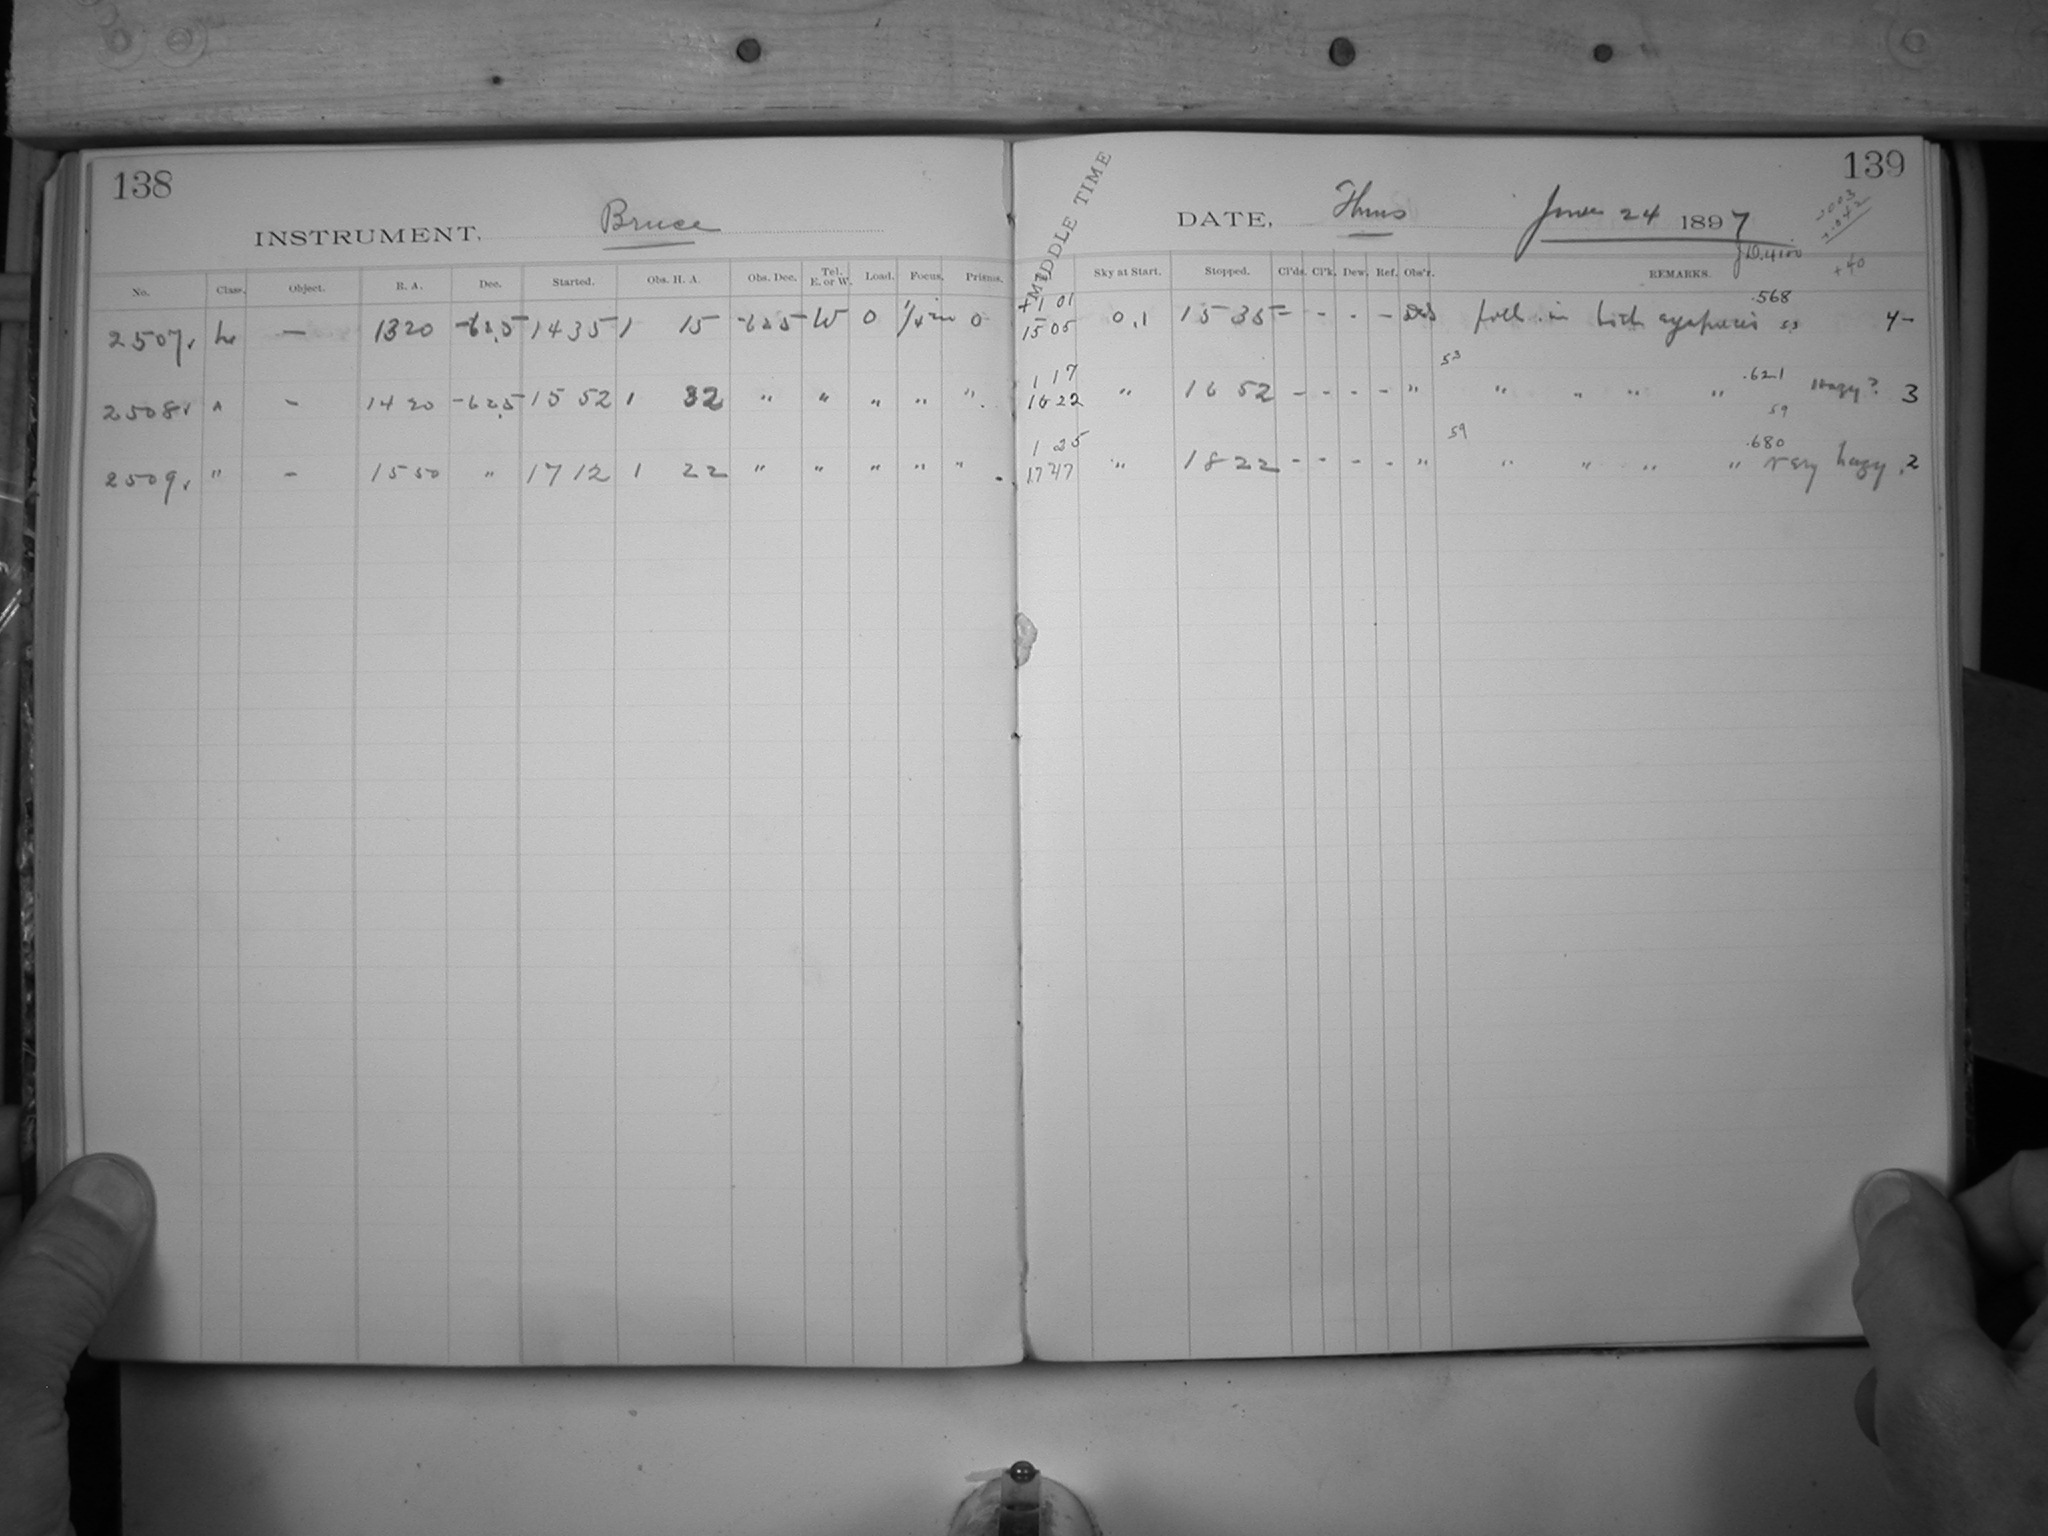 138
INSTRUMENT, Bruce
No. Class. Object. R. A. Dec. Started. Obs. H. A. Obs. Dec. Tel. E. or W. Load. Focus. Prisms.
2507 — 1320 -62.5 1435 1 15 -62.5 W 0 0
2508 — 1420 -62.5 15 52 1 32 " " " " "
2509 " — 1550 " 17 12 1 22 " " " " "
139
MIDDLE TIME
DATE, Thurs June 24 1897
+40
Sky at Start. Stopped. Cl'ds. Cl'k. Dew. Ref. Obs'r. REMARKS.
+1 01 .568
15 05 0,1 15 35 - - - - foll. in 4-
1 17 53 .621
16 22 " 16 52 - - - - " " " " " Hazy? 3
59
1 25 59 .680
17 47 " 18 22 - - - - " " " " " very hazy 2